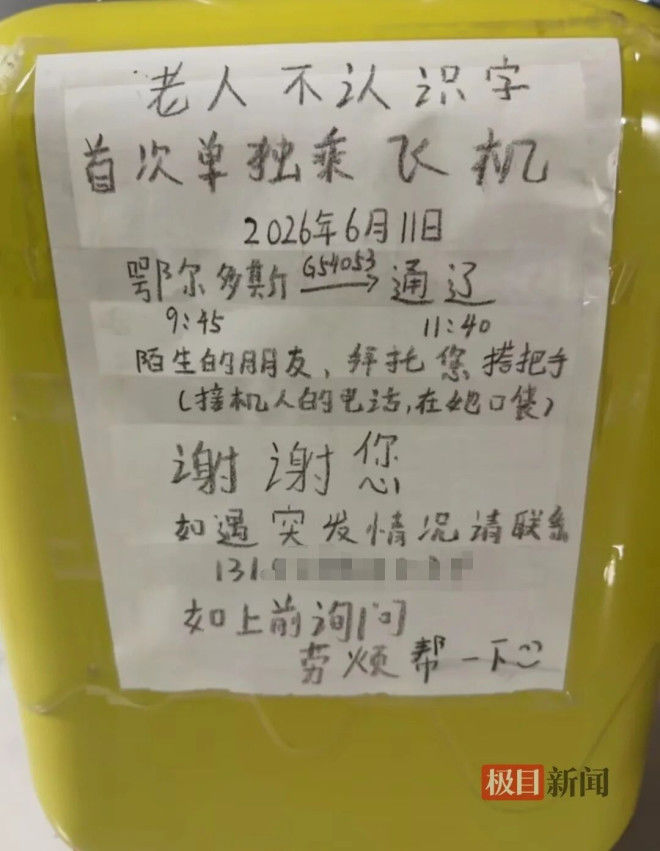 老人不认识字
首次单独乘飞机
2026年6月11日
鄂尔多斯 G54053 通辽
9:45 11:40
陌生的朋友、拜托您搭把手
(接机人的电话,在她口袋)
谢谢您
如遇突发情况请联系
131
如上前询问
劳烦帮一下
极目新闻